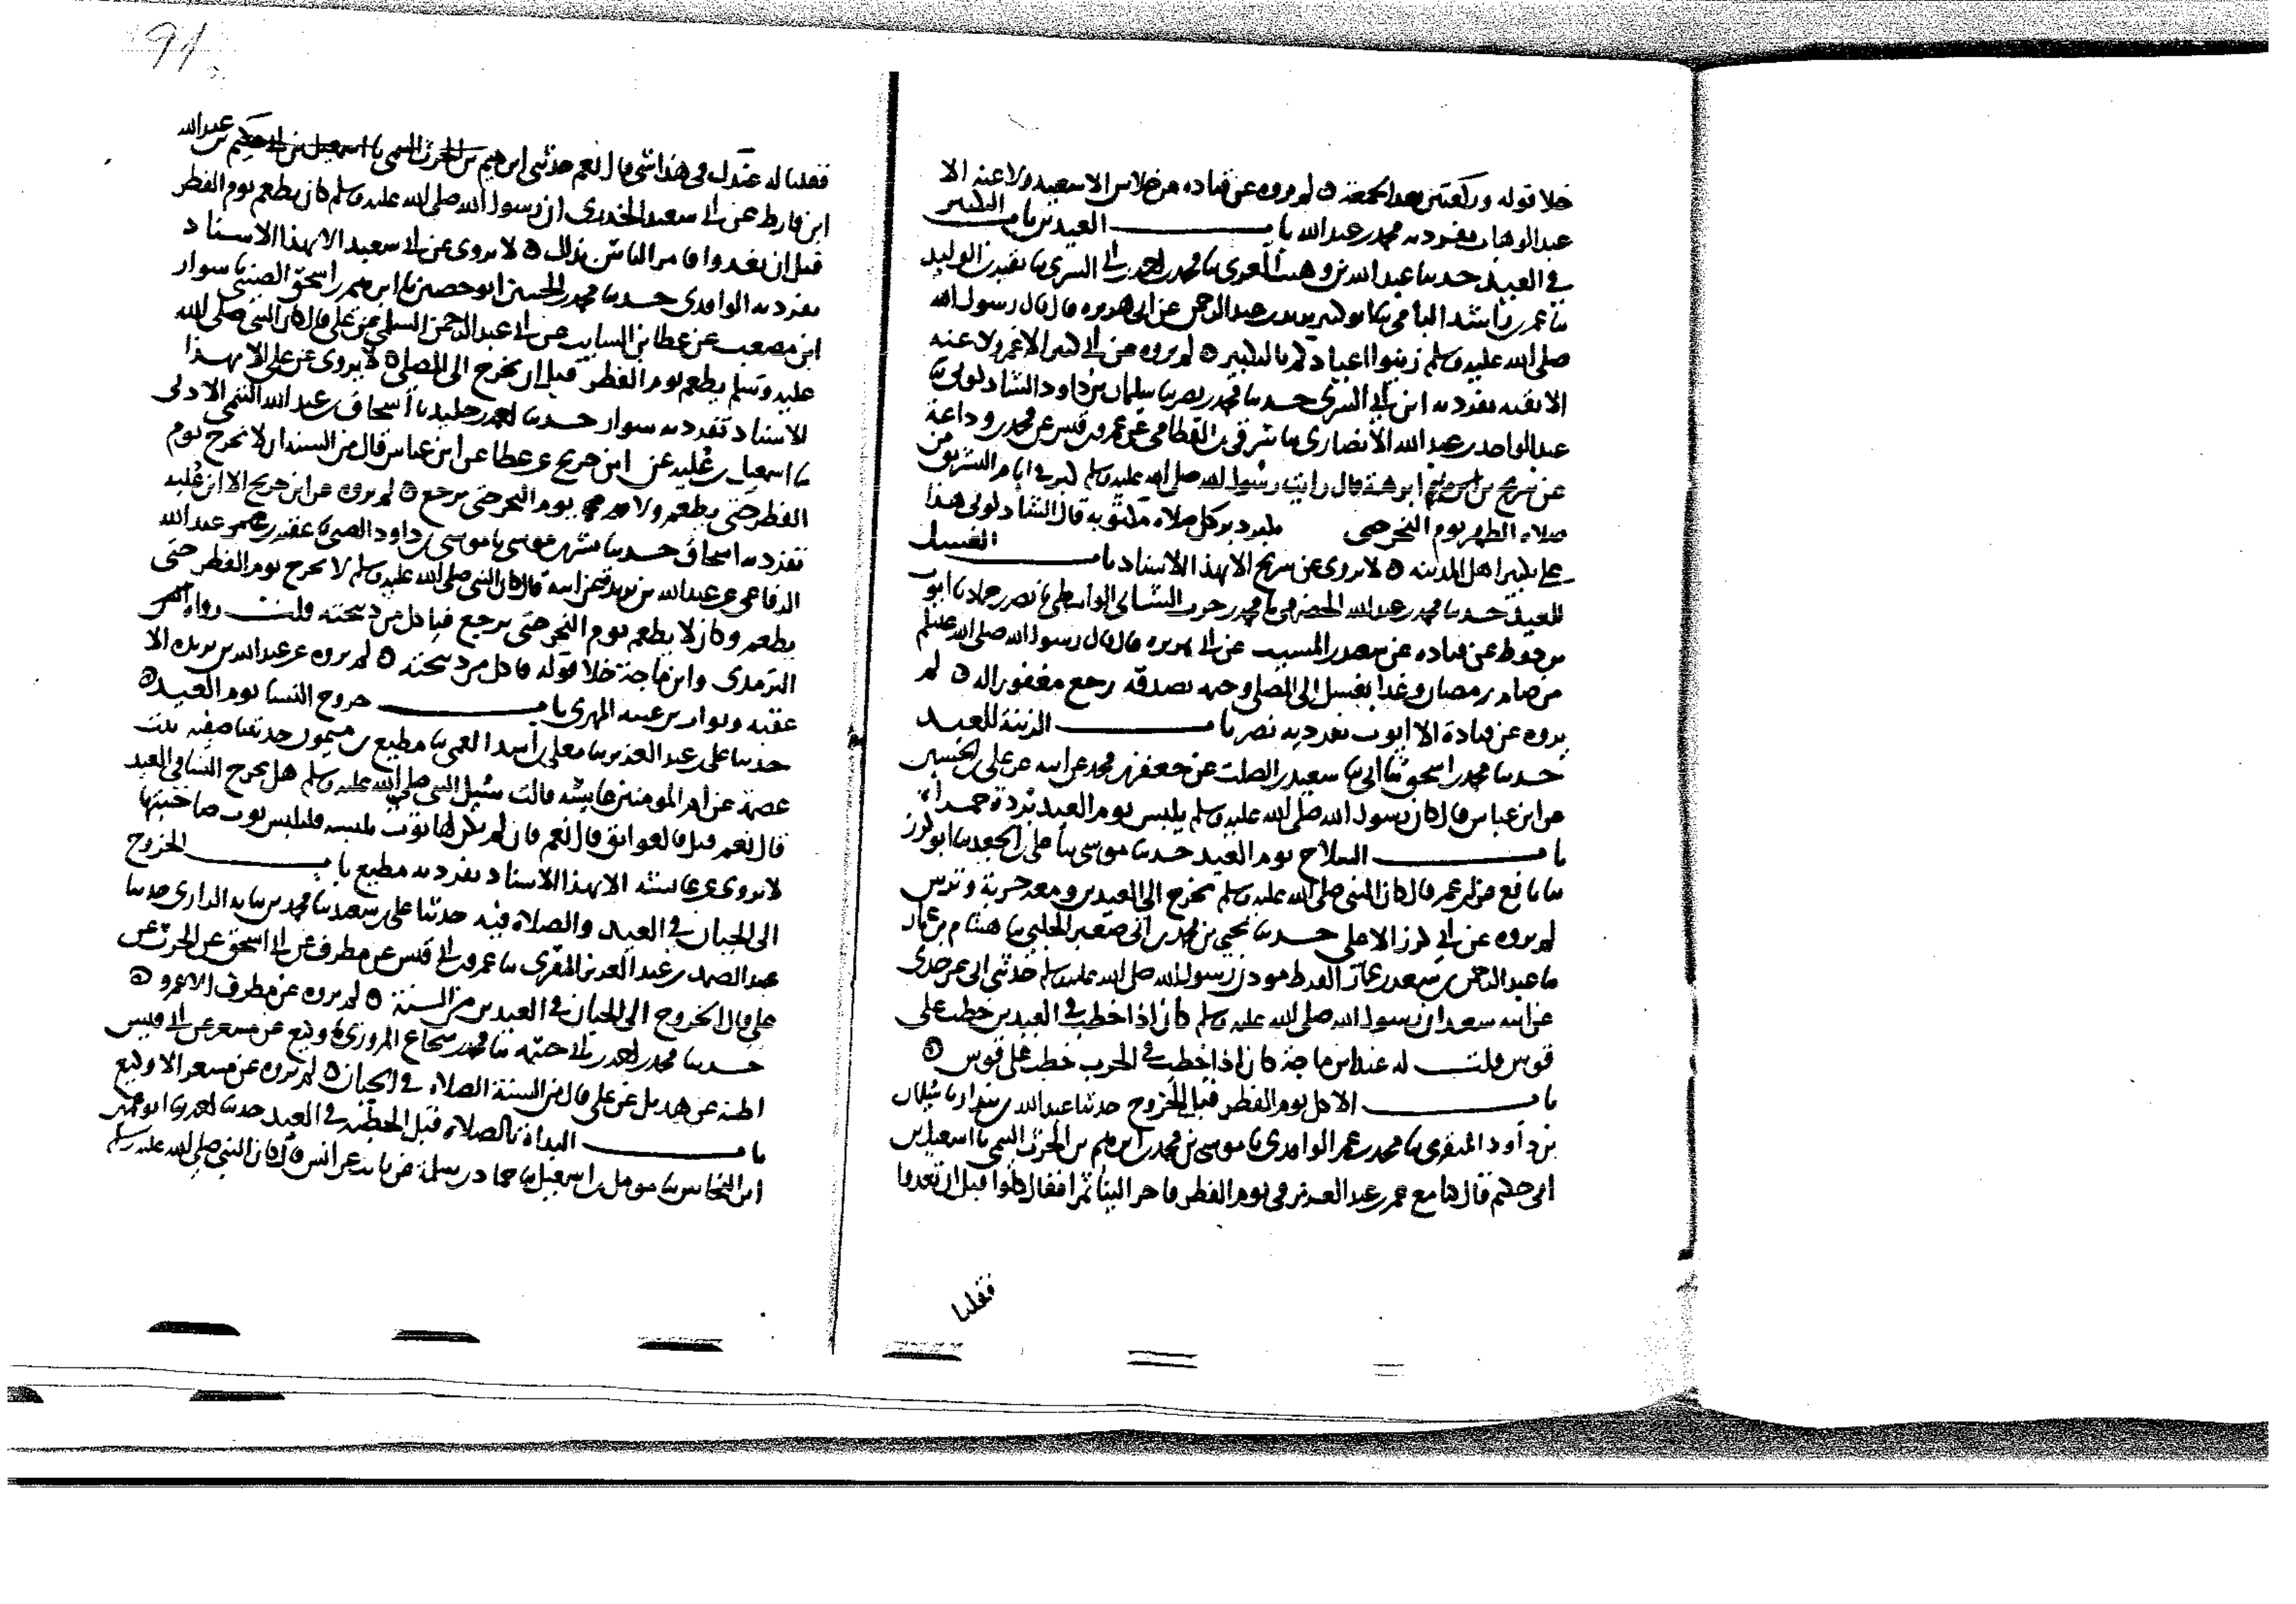 خلا قوله وركعتين بعد الجمعة ٥ لم يروه عن قتاده عن خلاس الا سعيد ولا عنه الا
عبد الوهاب تفرد به محمد بن عبد الله باب العيدين باب التكبير
في العيد حدثنا عبد الله بن وهيب الغزي ثنا محمد بن ابي السري ثنا بقية بن الوليد
ثنا عمر بن راشد اليمامي ثنا ابو كثير يزيد بن عبد الرحمن عن ابي هريره قال قال رسول الله
صلى الله عليه وسلم زينوا اعيادكم بالتكبير ٥ لم يروه عن ابي كثير الا عمر ولا عنه
الا بقيه تفرد به ابن ابي السري حدثنا محمد بن نصر ثنا سليمان بن داود الشاذكوني ثنا
عبد الواحد بن عبد الله الأنصاري ثنا شرقي بن القطامي عن عمرو بن قيس عن محمد بن وداعة
عن شريح بن ابرهة قال رايت رسول الله صلى الله عليه وسلم كبر في ايام التشريق من
صلاه الظهر يوم النحر حتى يكبر دبر كل صلاه مكتوبة قال الشاذكوني هذا
على تكبير اهل المدينه ٥ لا يروى عن شريح الا بهذا الاسناد باب الغسل
للعيد حدثنا محمد بن عبد الله الحضرمي ثنا محمد بن حرب النشائي الواسطي ثنا نصر بن حماد ثنا ايوب
بن خوط عن قتاده عن سعيد بن المسيب عن ابي هريره قال قال رسول الله صلى الله عليه وسلم
من صام رمضان وغدا بغسل الى المصلى وختمه بصدقه رجع مغفورا له ٥ لم
يروه عن قتادة الا ايوب تفرد به نصر باب الزينة للعيد
حدثنا محمد بن اسحق ثنا ابي ثنا سعيد بن الصلت عن جعفر بن محمد عن ابيه عن علي بن الحسين
عن ابن عباس قال كان رسول الله صلى الله عليه وسلم يلبس يوم العيد بردة حمراء
باب السلاح يوم العيد حدثنا موسى ثنا علي بن الجعد ثنا ابو كرز
ثنا نافع عن ابن عمر قال كان النبي صلى الله عليه وسلم يخرج الى العيدين ومعه حربة وترس
لم يروه عن ابي كرز الا علي حدثنا يحيى بن محمد بن ابي صغير الحلبي ثنا هشام بن عمار
ثنا عبد الرحمن بن سعد بن عمار القرظ موذن رسول الله صلى الله عليه وسلم حدثني ابي عن جدي
عن ابيه سعد ان رسول الله صلى الله عليه وسلم كان اذا خطب في العيدين خطب على
قوس قلت له عند ابن ماجة كان اذا خطب في الحرب خطب على قوس ٥
باب الاكل يوم الفطر قبل الخروج حدثنا عبد الله بن بندار ثنا سليمان
بن داود المنقري ثنا محمد بن عمر الواقدي ثنا موسى بن محمد بن ابرهيم بن الحرث التيمي ثنا اسمعيل بن
ابي حكيم قال كنا مع عمر بن عبد العزيز في يوم الفطر فاخرج الينا تمرا فقال كلوا قبل ان تغدوا
فقلنا
فقلنا له عندك في هذا شي قال نعم حدثني ابرهيم بن عبد الله
ابن قارظ عن ابي سعيد الخدري ان رسول الله صلى الله عليه وسلم كان يطعم يوم الفطر
قبل ان يغدوا ويامر الناس بذلك ٥ لا يروى عن ابي سعيد الا بهذا الاسناد
تفرد به الواقدي حدثنا محمد بن الحسين ابو حصين ثنا ابرهيم بن اسحق الصيني ثنا سوار
ابن مصعب عن عطا بن السايب عن ابي عبد الرحمن السلمي عن علي قال كان النبي صلى الله
عليه وسلم يطعم يوم الفطر قبل ان يخرج الى المصلى ٥ لا يروى عن علي الا بهذا
الاسناد تفرد به سوار حدثنا احمد بن خليد ثنا اسحاق بن عبد الله التيمي الاذني
ثنا اسمعيل بن علية عن ابن جريج عن عطا عن ابن عباس قال من السنة ان لا تخرج يوم
الفطر حتى يطعم ولا يوم النحر حتى يرجع ٥ لم يروه عن ابن جريج الا ابن علية
تفرد به اسحاق حدثنا بشر بن موسى ثنا موسى بن داود الضبي ثنا عقبة بن عبد الله
الرفاعي عن عبد الله بن بريدة عن ابيه قال كان النبي صلى الله عليه وسلم لا يخرج يوم الفطر حتى
يطعم وكان لا يطعم يوم النحر حتى يرجع فياكل من ذبيحته قلت رواه
الترمذي وابن ماجة خلا قوله فاكل من ذبيحته ٥ لم يروه عن عبد الله بن بريده الا
عقبه وثواب بن عتبه المهري باب خروج النسا يوم العيد ٥
حدثنا علي بن عبد العزيز ثنا معلى بن اسد العمي ثنا مطيع بن ميمون حدثتنا صفيه بنت
عصمة عن ام المومنين عايشه قالت سئل النبي صلى الله عليه وسلم هل يخرج النسا في العيد
قال نعم قيل فالعواتق قال نعم فان لم يكن لها ثوب تلبسه فلتلبس ثوب صاحبتها
لا يروى عن عايشه الا بهذا الاسناد تفرد به مطيع باب الخروج
الى الجبان في العيد والصلاه فيه حدثنا علي بن سعيد ثنا محمد بن الرازي حدثنا
عبد الصمد بن عبد العزيز المقري ثنا عمرو بن ابي قيس عن مطرف عن ابي اسحق عن الحرث عن
علي قال الخروج الى الجبان في العيدين من السنة ٥ لم يروه عن مطرف الا عمرو ٥
حدثنا محمد بن احمد بن ابي خيثمه ثنا محمد بن شجاع المروزي ثنا وكيع عن مسعر عن ابي قيس
اظنه عن هذيل عن علي قال من السنة الصلاه في الجبان ٥ لم يروه عن مسعر الا وكيع
باب البداة بالصلاه قبل الخطبة في العيد حدثنا احمد ثنا ابو عمير
ابن النحاس ثنا مومل بن اسمعيل ثنا حماد بن سلمة عن ثابت عن انس قال كان النبي صلى الله عليه وسلم